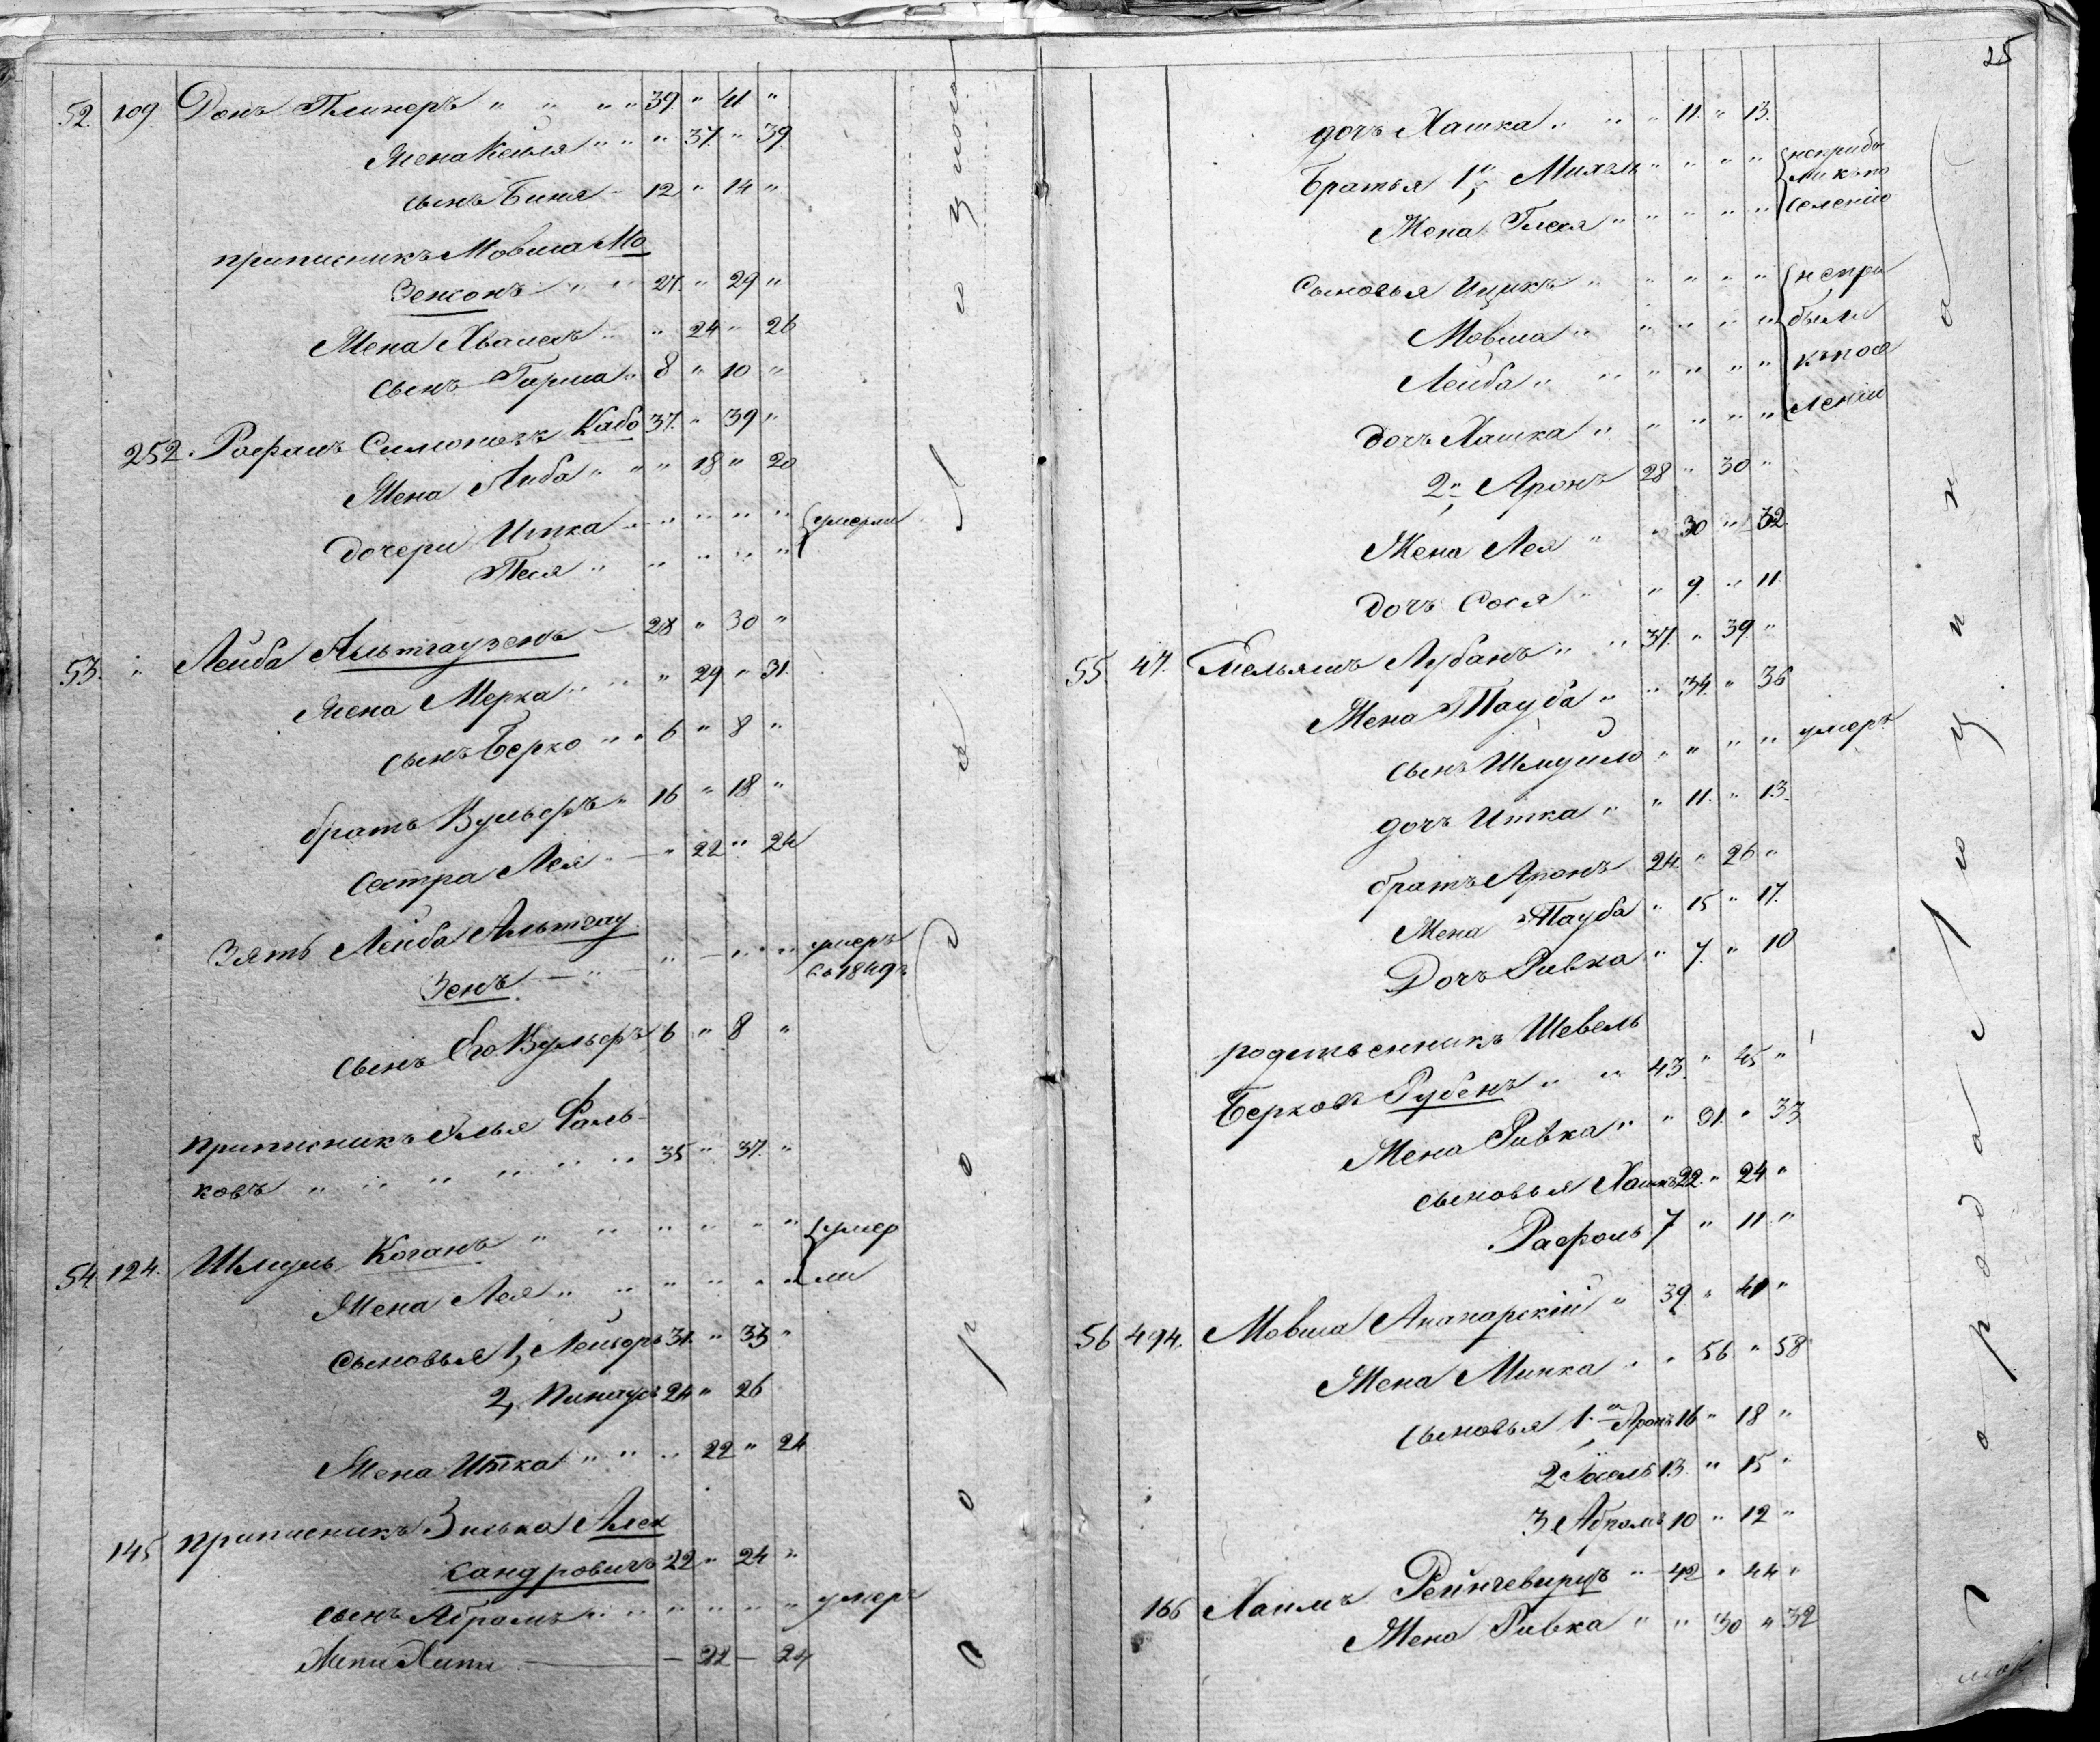 52. 109. Донъ Плинеръ " " " " 39. " 41 "
Жена Кейля " " " 37. " 39
сынъ Биня " 12 " 14 "
приписникъ Мовша Мо
зенсонъ " " 27. " 29 "
Жена Хвалесъ " " 24 " 26
сынъ Гирша " 8 " 10 "
252. Рафаилъ Симоновъ Кабо 37. " 39 "
Жена Либа " " " 18 " 20
дочери Итка " " " " " умерли
Песя " " " " " "
53. " Лейба Альтгаузенъ — 28 " 30 "
жена Мерка " " " 29 " 31.
сынъ Берко " " 6 " 8 "
братъ Вульфъ " 16 " 18 "
сестра Лея " — " 22 " 24
Зять Лейба Альтгау
зенъ — " — " — " " " умеръ
въ 1849 г
сынъ Его Вульфъ 6 " 8 "
приписникъ Элья Фаль-
ковъ " " " " " " 35 " 37. "
54. 124. Шмуль Коганъ " " " " " " умер
Жена Лея " " " " " " ли
сыновья 1, Лейзоръ 31. " 33 "
2, Пинхусъ 24 " 26
Жена Итка " " " 22 " 24
145 приписникъ Зилька Алек
сандровичъ 22 " 24 "
сынъ Абрамъ " " " " " " умеръ
— 22 — 24
Продо люцио
25
дочь Хашка " " " 11. " 13.
Братья 1й Михель " " " " неприбы
ли къ по
Жена Гнеся " " " " " селенію
Сыновья Ицикъ " " " " " непри
Мовша " " " " " были
Лейба " " " " " " къ посе
дочь Хашка " " " " " ленію
2й Аронъ 28 " 30 "
Жена Лея " " 30 " 32.
дочь Сося " " 9. " 11.
55. 47. Емельянъ Лубанъ " " 37. " 39 "
Жена Тауба " " 34. " 36
сынъ Шмуило " " " " умеръ
дочь Итка " " 11. " 13.
братъ Аронъ 24. " 26 "
Жена Тауба " 15 " 17.
Дочь Ривка " 7. " 10
родственникъ Шевель
Берковъ Рубенъ " " 43. " 45 "
Жена Ривка " " 31. " 33
сыновья Хаимъ 22. " 24 "
Рафоль 7 " 11 "
56 494. Мовша Анапарскій " 39. " 41 "
Жена Минка " " 56 " 58
сыновья 1.й Аронъ 16 " 18 "
2 Іосель 13. " 15 "
3 Абрамъ 10 " 12 "
166 Хаимъ Рейнгевирцъ " 42 " 44 "
Жена Ривка " " 30 " 32